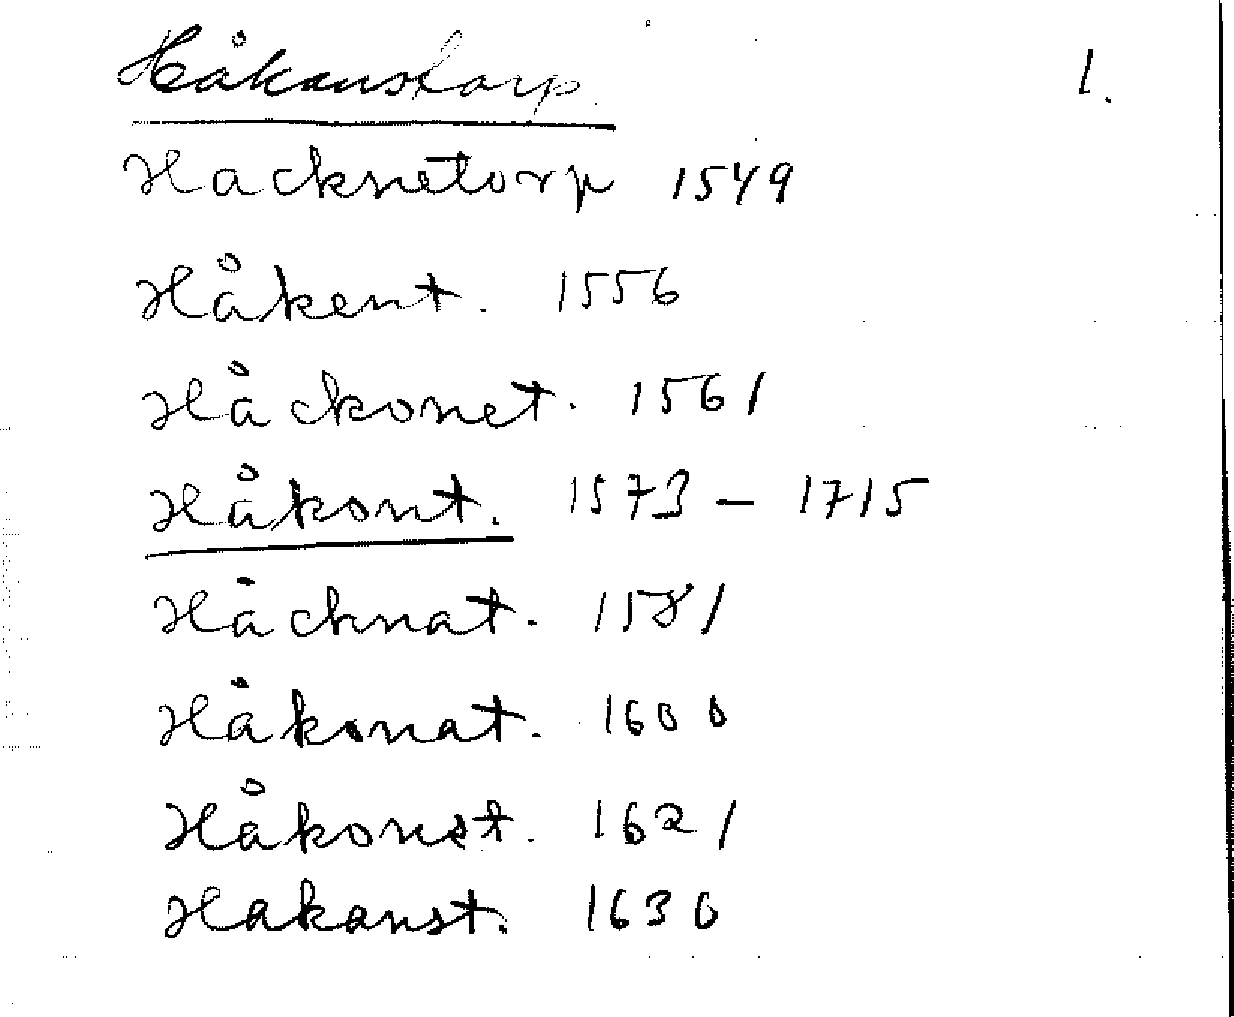 Håkanstorp 1.
Hacknetorp 1549
Håkent. 1556
Håckonet. 1561
Håkont. 1573 – 1715
Håcknat. 1581
Håkonat. 1600
Håkonst. 1621
Hakanst. 1630